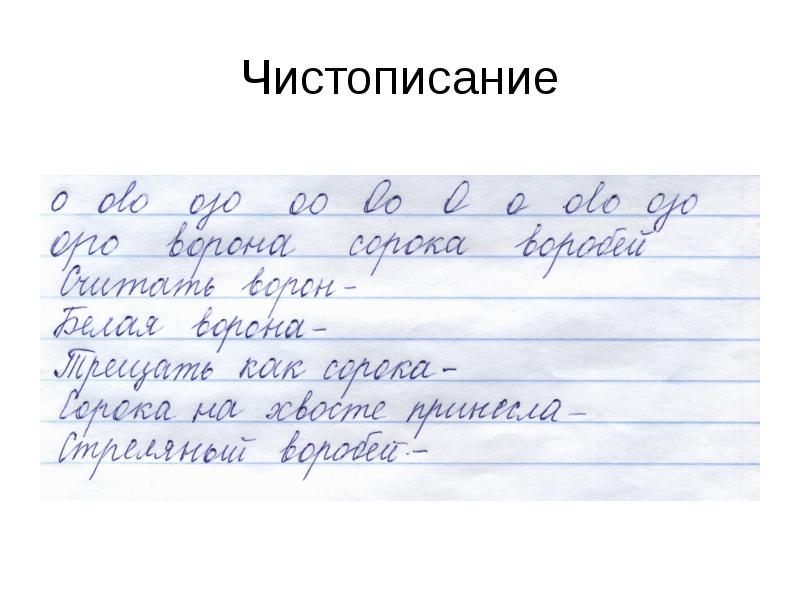 Чистописание
о ово озо оо Оо О о ово озо
оро ворона сорока воробей
Считать ворон-
Белая ворона-
Трещать как сорока-
Сорока на хвосте принесла-
Стреляный воробей-